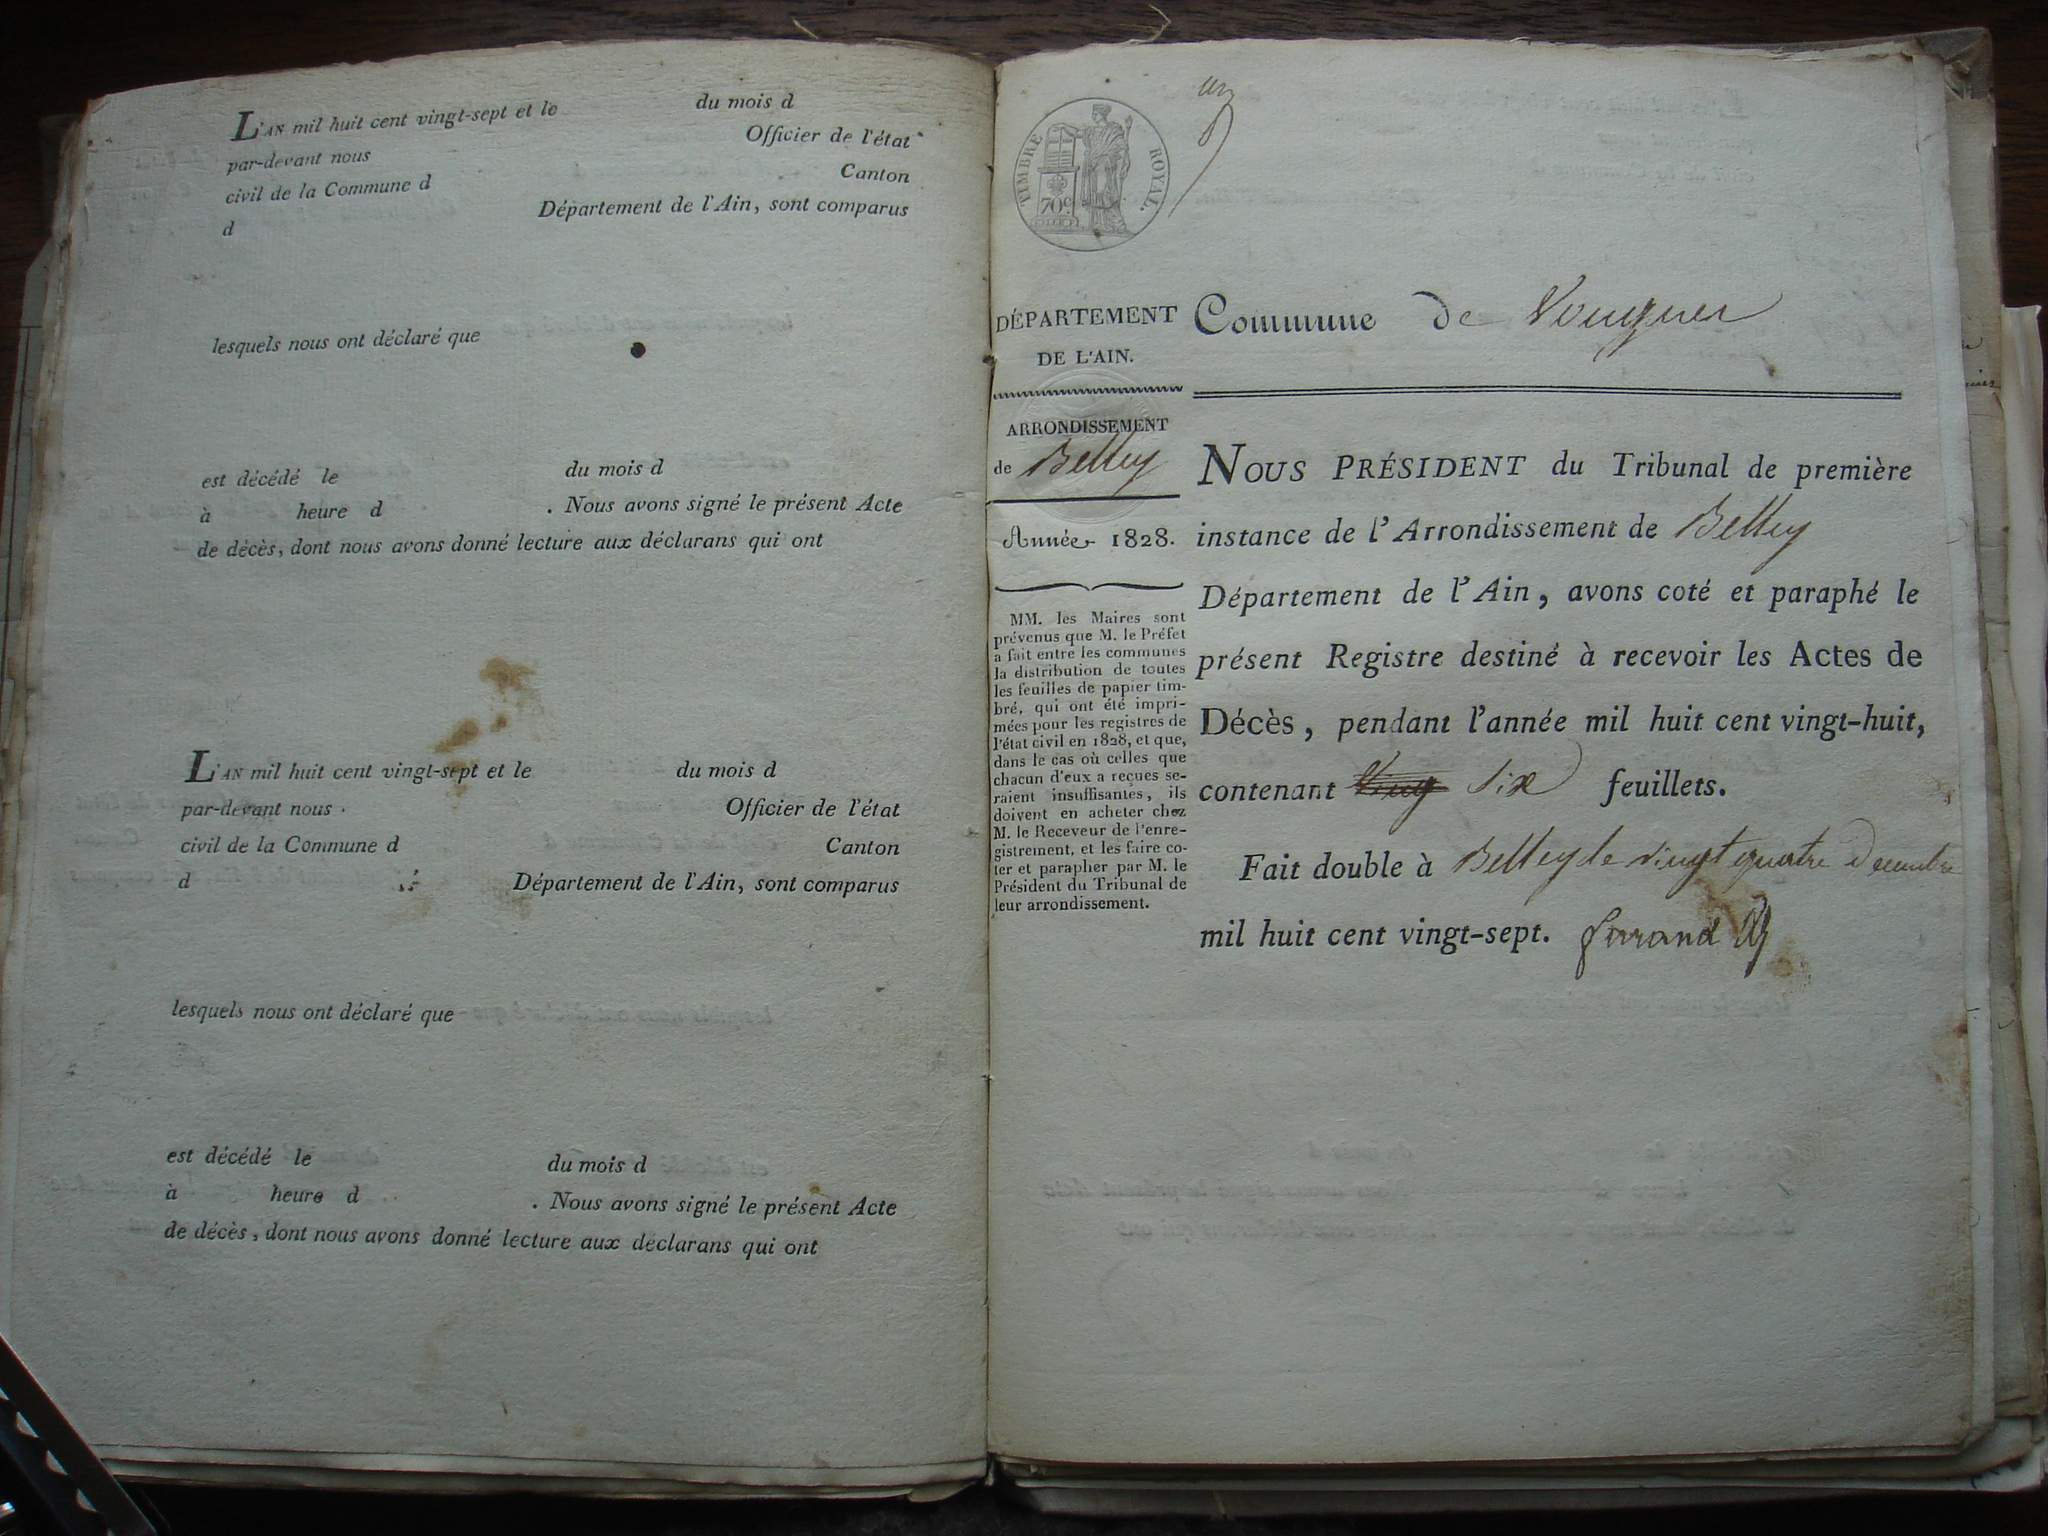 L'AN mil huit cent vingt-sept et le du mois d
par-devant nous Officier de l'état
civil de la Commune d Canton
d Département de l'Ain, sont comparus
lesquels nous ont déclaré que
est décédé le du mois d
à heure d . Nous avons signé le présent Acte
de décès, dont nous avons donné lecture aux déclarans qui ont
L'AN mil huit cent vingt-sept et le du mois d
par-devant nous Officier de l'état
civil de la Commune d Canton
d Département de l'Ain, sont comparus
lesquels nous ont déclaré que
est décédé le du mois d
à heure d . Nous avons signé le présent Acte
de décès, dont nous avons donné lecture aux déclarans qui ont
TIMBRE ROYAL.
70c
DÉPARTEMENT
DE L'AIN.
ARRONDISSEMENT
de Belley
Année 1828.
MM. les Maires sont
prévenus que M. le Préfet
a fait entre les communes
la distribution de toutes
les feuilles de papier tim-
bré, qui ont été impri-
mées pour les registres de
l'état civil en 1828, et que,
dans le cas où celles que
chacun d'eux a reçues se-
raient insuffisantes, ils
doivent en acheter chez
M. le Receveur de l'enre-
gistrement, et les faire co-
ter et parapher par M. le
Président du Tribunal de
leur arrondissement.
Commune de
NOUS PRÉSIDENT du Tribunal de première
instance de l'Arrondissement de Belley
Département de l'Ain, avons coté et paraphé le
présent Registre destiné à recevoir les Actes de
Décès, pendant l'année mil huit cent vingt-huit,
contenant Six feuillets.
Fait double à Belley le vingt quatre Decembre
mil huit cent vingt-sept.